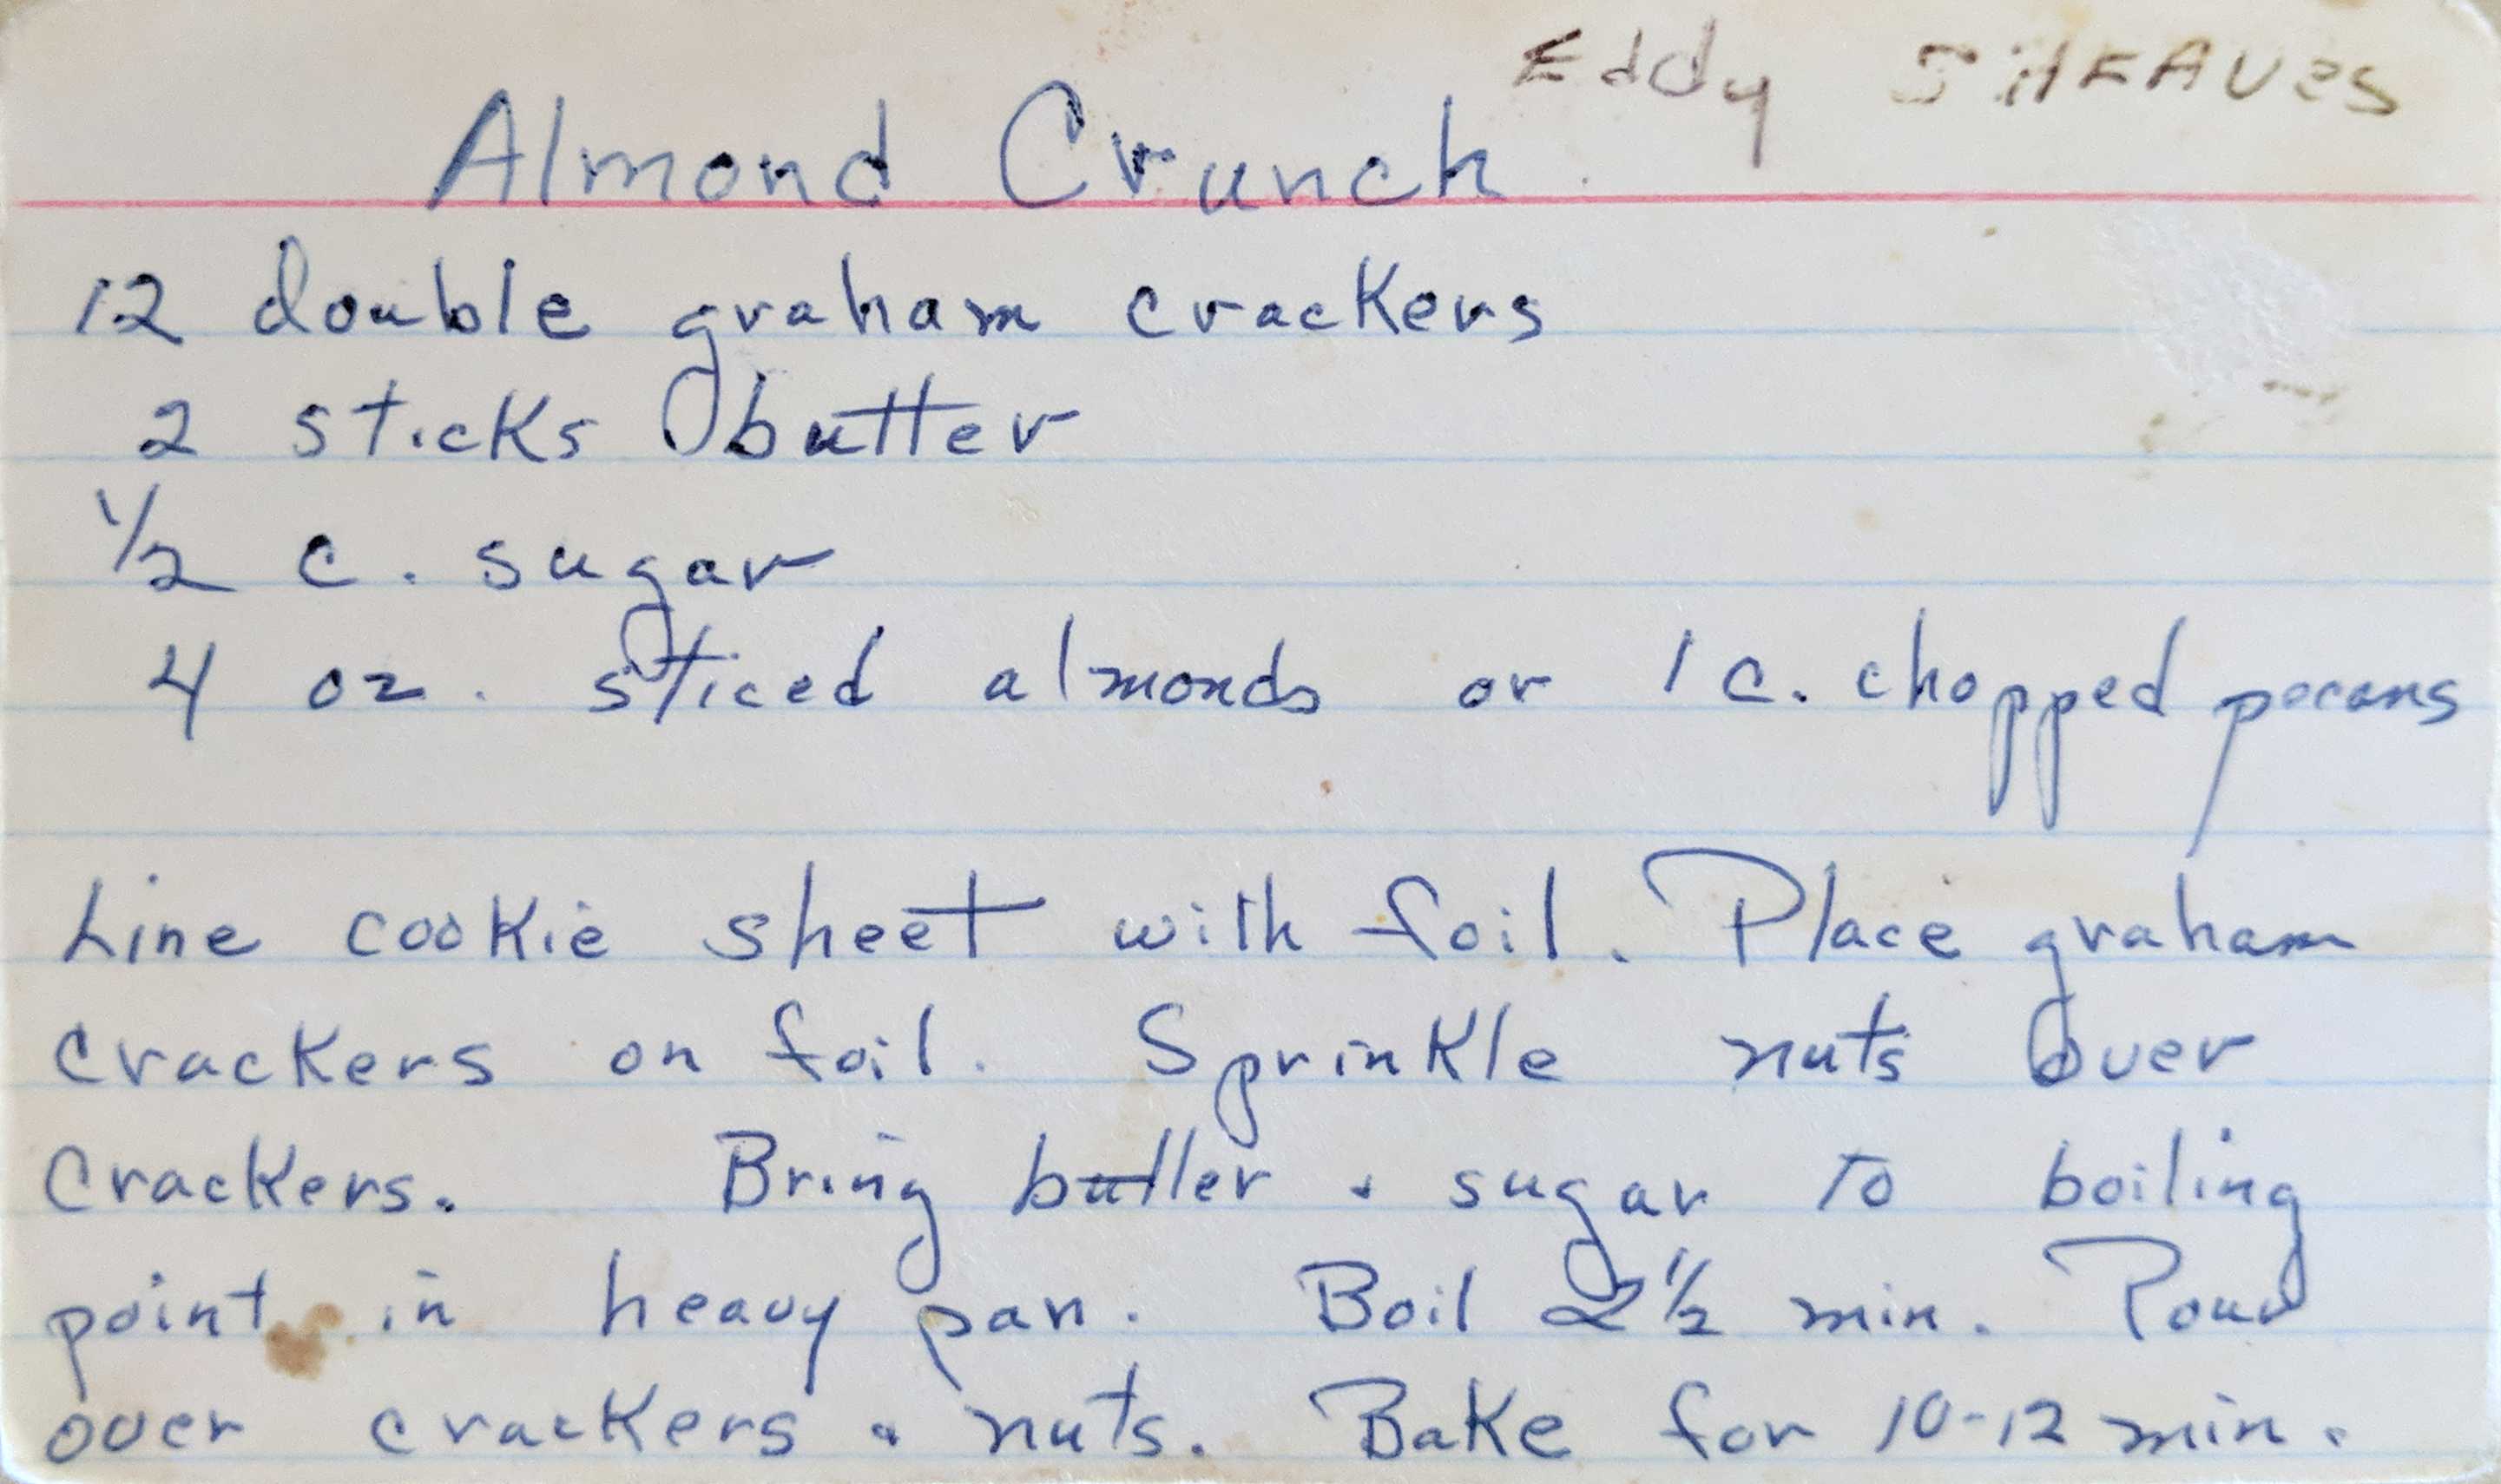 Eddy SHEAVES
Almond Crunch
12 double graham crackers
2 sticks butter
1/2 c. sugar
4 oz. sliced almonds or 1 c. chopped pecans
Line cookie sheet with foil. Place graham
crackers on foil. Sprinkle nuts over
crackers. Bring butter & sugar to boiling
point in heavy pan. Boil 2 1/2 min. Pour
over crackers & nuts. Bake for 10-12 min.